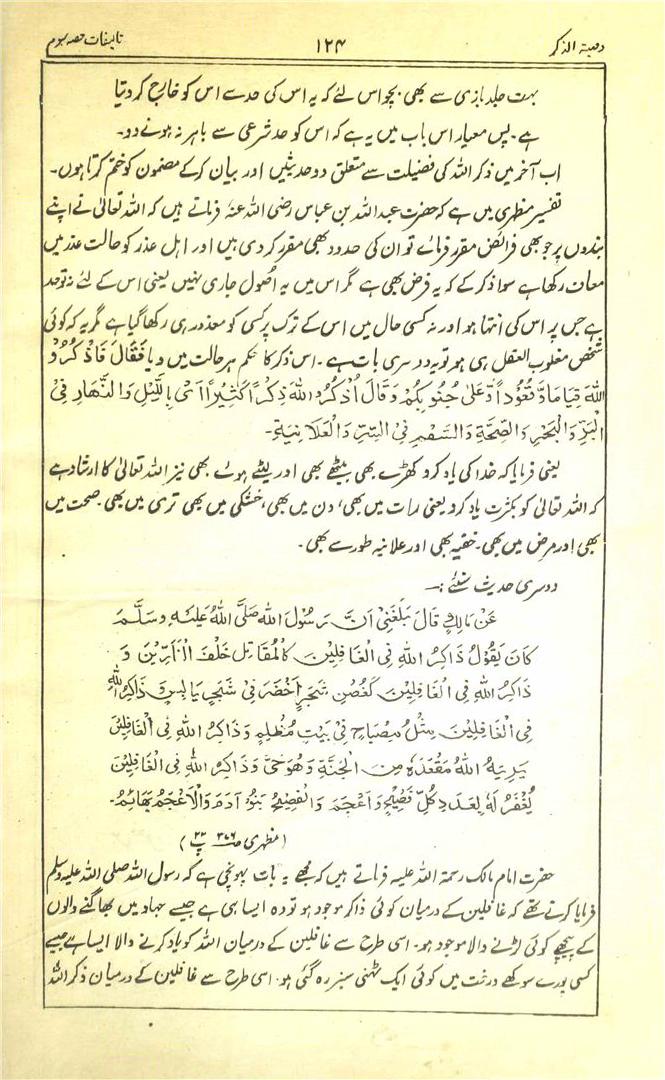 وصیۃ الذکر ۱۲۴ تالیفات حصہ سوم
بہت جلد بازی سے بھی بچو اس لئے کہ یہ اس کی حد سے اس کو خارج کر دیتا
ہے۔ پس معیار اس باب میں یہ ہے کہ اس کو حد شرعی سے باہر نہ ہونے دو۔
اب آخر میں ذکر اللہ کی فضیلت سے متعلق دو حدیثیں اور بیان کر کے مضمون کو ختم کرتا ہوں۔
تفسیر مظہری میں ہے کہ حضرت عبد اللہ بن عباس رضی اللہ عنہٗ فرماتے ہیں کہ اللہ تعالیٰ نے اپنے
بندوں پر جو بھی فرائض مقرر فرمائے تو ان کی حدود بھی مقرر کر دی ہیں اور اہل عذر کو حالت عذر میں
معاف رکھا ہے سوا ذکر کے کہ یہ فرض بھی ہے مگر اس میں یہ اُصول جاری نہیں یعنی اس کے لئے نہ تو حد
ہے جس پر اس کی انتہا ہو اور نہ کسی حال میں اس کے ترک پر کسی کو معذور ہی رکھا گیا ہے مگر یہ کہ کوئی
شخص مغلوب العقل ہی ہو تو یہ دوسری بات ہے۔ اس ذکر کا حکم ہر حالت میں دیا فَقَالَ فَاذْکُرُوْ
اللہَ قِیَامًا وَّ قُعُوْدًا وَّ عَلیٰ جُنُوبِکُمْ وَقَالَ اُذْکُرُوْ اللہَ ذِکْرًا کَثِیْرًا اَیْ بِاللَّیْلِ وَالنَّھَارِ فِیْ
الْبَرِّ وَالْبَحْرِ وَالصِّحَّةِ وَالسَّقْمِ فِی السِّرِّ وَالْعَلَانِیَةِ۔
یعنی فرمایا کہ خدا کی یاد کرو کھڑے بھی بیٹھے بھی اور لیٹے ہوئے بھی نیز اللہ تعالیٰ کا ارشاد ہے
کہ اللہ تعالیٰ کو بکثرت یاد کرو یعنی رات میں بھی، دن میں بھی، خشکی میں بھی تری میں بھی۔ صحت میں
بھی اور مرض میں بھی۔ خفیہ بھی اور علانیہ طور سے بھی۔
دوسری حدیث سنئے:۔
عَنْ مَالِکٍ قَالَ بَلَغَنِیْ اَنَّ رَسُوْلَ اللہِ صَلَّی اللہُ عَلَیْہِ وَسَلَّمَ
کَانَ یَقُوْلُ ذَاکِرُ اللہِ فِی الْغَافِلِیْنَ کَالْمُقَاتِلِ خَلْفَ الْفَارِّیْنَ وَ
ذَاکِرُ اللہِ فِی الْغَافِلِیْنَ کَغُصْنِ شَجَرٍ اَخْضَرَ فِیْ شَجَرٍ یَابِسٍ وَ ذَاکِرُ اللہِ
فِی الْغَافِلِیْنَ مِثْلُ مِصْبَاحٍ فِیْ بَیْتٍ مُظْلِمٍ وَذَاکِرُ اللہِ فِی الْغَافِلِیْنَ
یُرِیْہِ اللہُ مَقْعَدَہٗ مِنَ الْجَنَّةِ وَھُوَ حَیٌّ وَذَاکِرُ اللہِ فِی الْغَافِلِیْنَ
یُغْفَرُ لَہٗ بِعَدَدِ کُلِّ فَصِیْحٍ وَّ اَعْجَمَ وَالْفَصِیْحُ بَنُوْ اٰدَمَ وَالْاَعْجَمُ بَھَائِمُ۔
(مظہری ص۳۷۶ پ۲۲)
حضرت امام مالک رحمۃ اللہ علیہ فرماتے ہیں کہ مجھے یہ بات پہونچی ہے کہ رسول اللہ صلی اللہ علیہ وسلم
فرمایا کرتے تھے کہ غافلین کے درمیان کوئی ذاکر موجود ہو تو وہ ایسا ہی ہے جیسے جہاد میں بھاگنے والوں
کے پیچھے کوئی لڑنے والا موجود ہو۔ اسی طرح سے غافلین کے درمیان اللہ کو یاد کرنے والا ایسا ہے جیسے
کسی پورے سوکھے درخت میں کوئی ایک ٹہنی سبز رہ گئی ہو۔ اسی طرح سے غافلین کے درمیان ذکر اللہ